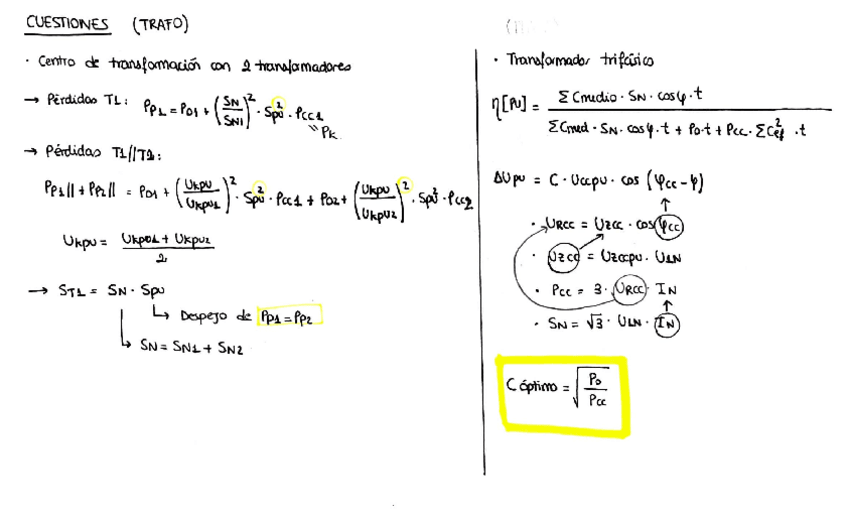 CUESTIONES (TRAFO)
· Centro de transformación con 2 transformadores
→ Pérdidas T1: Pp1 = P01 + (SN/SN1)² · Spu² · Pcc1
Pk
→ Pérdidas T1//T2:
Pp1|| + Pp2|| = P01 + (Ukpu/Ukpu1)² · Spu² · Pcc1 + P02 + (Ukpu/Ukpu2)² · Spu² · Pcc2
Ukpu = (Ukpu1 + Ukpu2)/2
→ ST1 = SN · Spu
↳ Despejo de Pp1 = Pp2
↳ SN = SN1 + SN2
· Transformador trifásico
η[pu] = Σ Cmedio · SN · cosφ · t / Σ Cmed · SN · cosφ · t + P0 · t + Pcc · Σ Cef² · t
ΔUpu = C · Uccpu · cos (φcc - φ)
· URcc = UZcc · cos φcc
· UZcc = UZccpu · ULN
· Pcc = 3 · URcc · IN
· SN = √3 · ULN · IN
C óptimo = √(P0/Pcc)